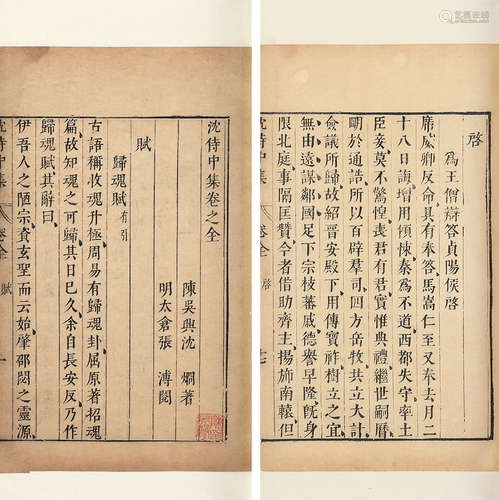 啓
爲王僧辯答貞陽侯啓
席威卿反命具有奉答馬嵩仁至又奉去月二
十八日誨增用傾悚泰爲不道西都失守率土
臣妾莫不驚惶喪君有君實惟典禮繼世嗣曆
朙於通誥所以百辟羣司四方岳牧共立大計
僉議所歸故紹晉安殿下用傳寶祚樹立之宜
無由遠謀鄰國足下宗枝蕃戚德譽早隆旣身
限北庭事隔匡贊今者借助齊主揚斾南轅但
沈侍中集 卷全 啓
沈侍中集卷之全
陳吳興沈 烱著
明太倉張 溥閱
賦
歸魂賦 有引
古語稱收魂升極周易有歸魂卦屈原著招魂
篇故知魂之可歸其日已久余自長安反乃作
歸魂賦其辭曰
伊吾人之陋宗資玄聖而云始肇邵閎之靈源
沈侍中集 卷全 賦 一